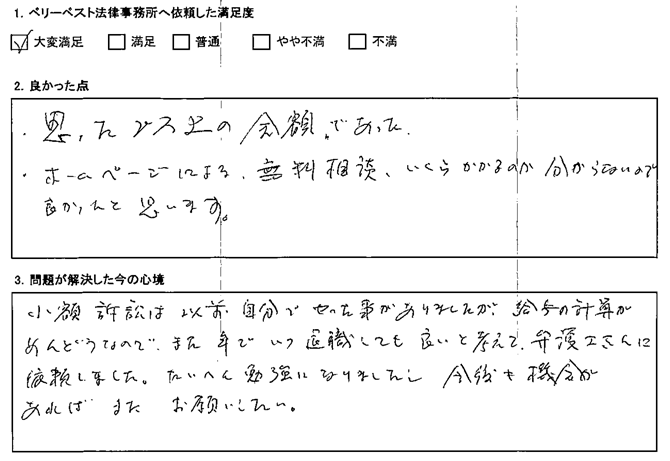 1. ベリーベスト法律事務所へ依頼した満足度
大変満足 満足 普通 やや不満 不満
2. 良かった点
・思った以上の金額であった.
・ホームページによる、無料相談、いくらかかるのか分からないので
良かったと思います。
3. 問題が解決した今の心境
小額訴訟は以前自分でやった事がありましたが、給与の計算が
めんどうなので、また年でいつ退職しても良いと考えて、弁護士さんに
依頼しました。たいへん勉強になりましたし 今後も機会が
あれば また お願いしたい。